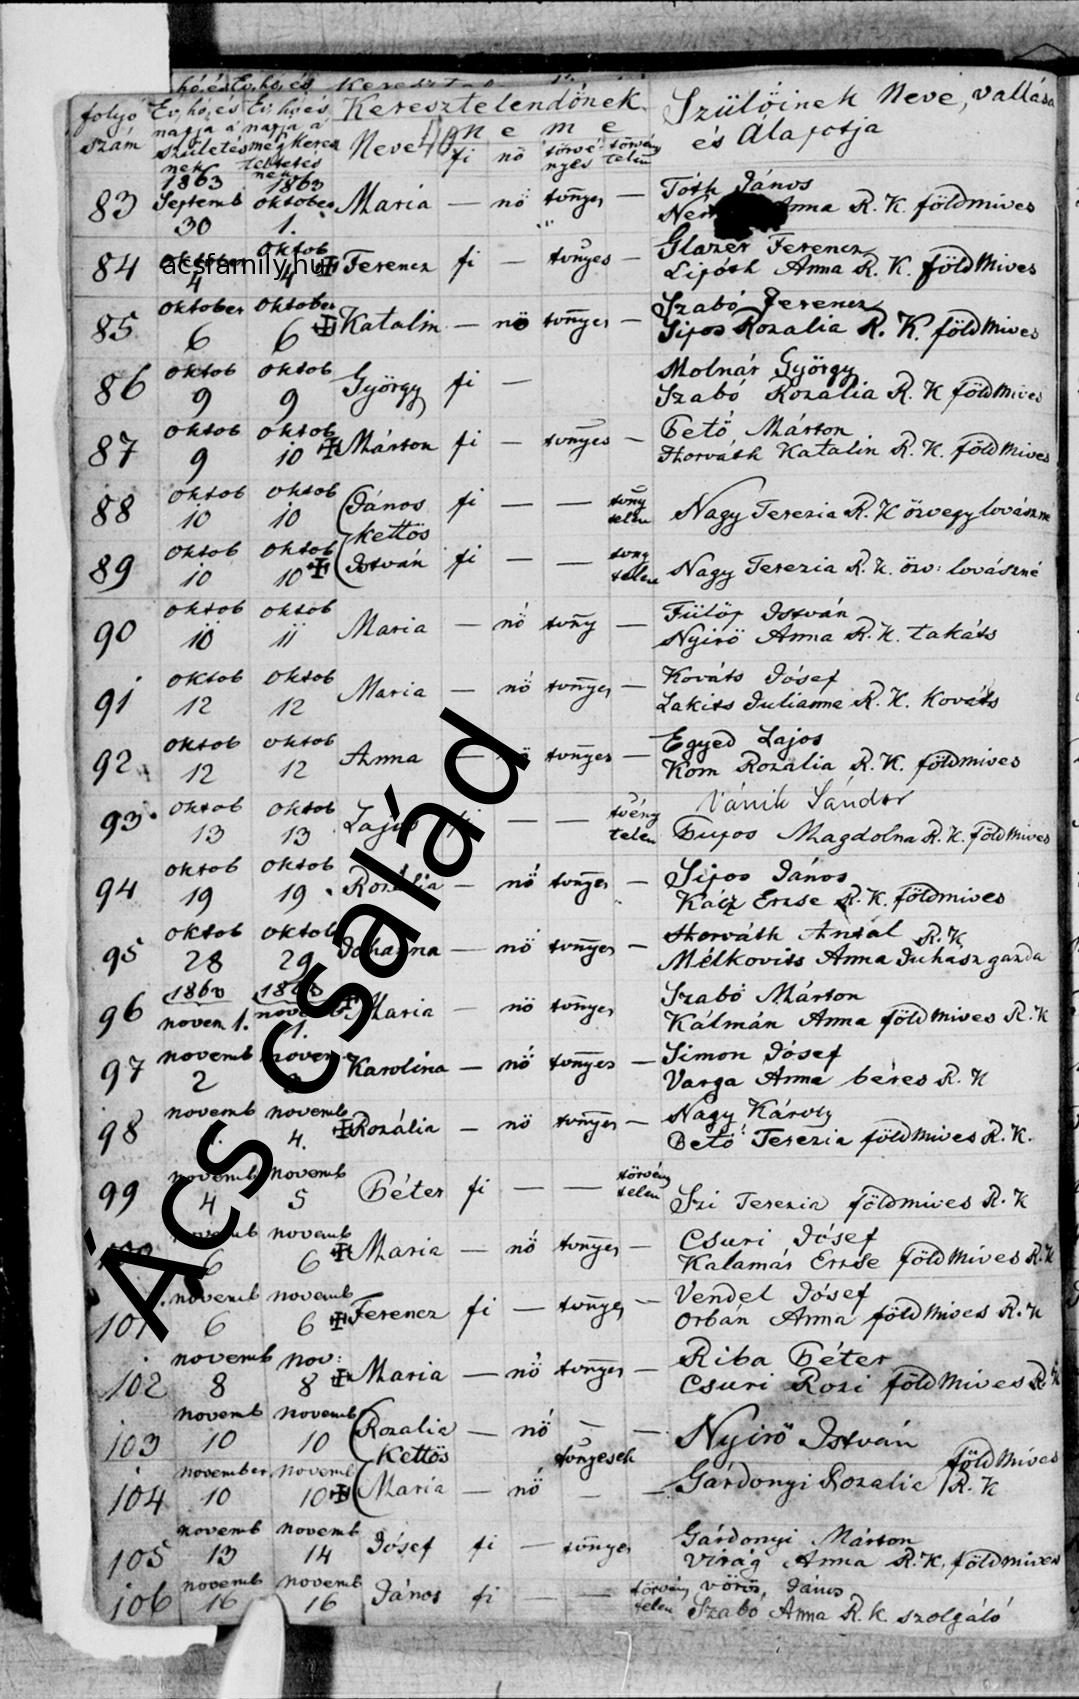 folyó szám Év, hó, és napja a születésnek Év, hó, és napja, a megkereszteltetésnek Keresztelendőnek Szülőinek Neve, vallása
Neve neme és Álapotja
fi nö törvényes törvénytelen
1863 1863
83 Septemb 30 oktober 1. Maria — nö tvnyes — Tóth János
Anna R. K. földmives
84 4 Oktob 4 Ferencz fi — tvnyes — Glazer Ferencz
Lipóth Anna R. K. földmives
acsfamily.hu
85 oktober 6 oktober 6 Katalin — nö tvnyes — Szabó Ferencz
Sipos Rozalia R. K. földmives
86 oktob 9 oktob 9 György fi — Molnár György
Szabó Rozalia R. K földmives
87 oktob 9 oktob 10 Márton fi — tvnyes — Pető Márton
Horváth Katalin R. K. földmives
88 oktob 10 oktob 10 János fi — — tvny telen Nagy Terezia R. K özvegy lovászné
kettös
89 oktob 10 oktob 10 István fi — — tvny telen Nagy Terezia R. K. özv: lovászné
90 oktob 10 oktob 11 Maria — nö tvny — Fülöp István
Nyirö Anna R. K. takáts
91 oktob 12 oktob 12 Maria — nö tvnyes — Kováts Jósef
Lakits Julianna R. K. Kováts
92 oktob 12 oktob 12 Anna — nö tvnyes — Egyed Lajos
Kom Rozalia R. K. földmives
93 oktob 13 oktob 13 Lajos fi — — tvény telen Vánik Sándor
Magdolna R. K. földmives
94 oktob 19 oktob 19 Rozália — nö tvnyes — Sipos János
Ersse R. K. földmives
95 oktob 28 oktob 29 Johanna — nö tvnyes — Horváth Antal R. K
Mélkovits Anna Juhász gazda
96 noven 1. 1. Maria — nö tvnyes Szabó Márton
Kálmán Anna földmives R. K
97 novemb 2 Karolina — nö tvnyes — Simon Jósef
Varga Anna béres R. K
98 novemb novemb 4. Rozália — nö tvnyes — Nagy Károly
Pető Terezia földmives R. K.
99 novemb 4 novemb 5 Péter fi — — törvény telen
Szi Terezia földmives R. K
6 novemb 6 Maria — nö tvnyes — Csuri Jósef
Kalamár Ersse földmives R. K
101 novemb 6 novemb 6 Ferencz fi — tvnyes — Vendel Jósef
Orbán Anna földmives R. K
102 novemb 8 nov: 8 Maria — nö tvnyes — Riba Péter
Csuri Rozi földmives R. K
103 novemb 10 novemb 10 Rozalia — nö — — Nyirö István
Kettös tvnyesek földmives
104 november 10 novemb 10 Maria — nö — — Gárdonyi Rozalia R. K
105 novemb 13 novemb 14 Jósef fi — tvnyes Gárdonyi Márton
Virág Anna R. K. földmives
106 novemb 16 novemb 16 János fi — — törvény telen vörös, János
Szabó Anna R. K. szolgáló
Ács család